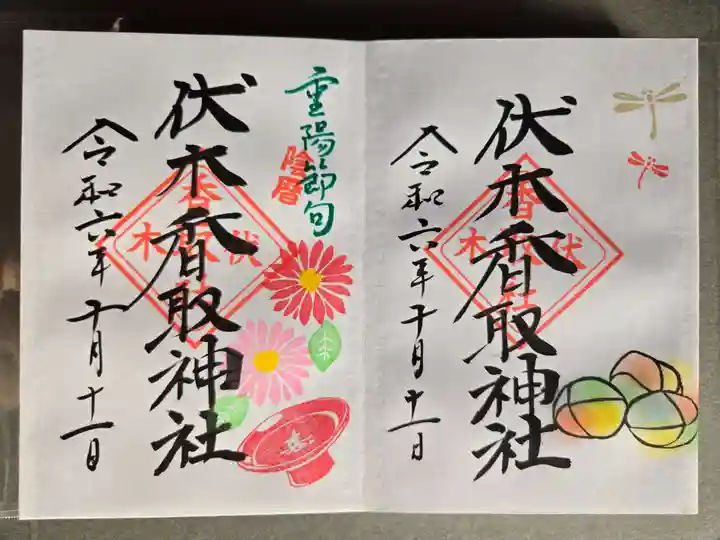 伏木香取神社
伏木
令和六年十月十一日
重陽節句
陰暦
伏木香取神社
伏木
令和六年十月十一日